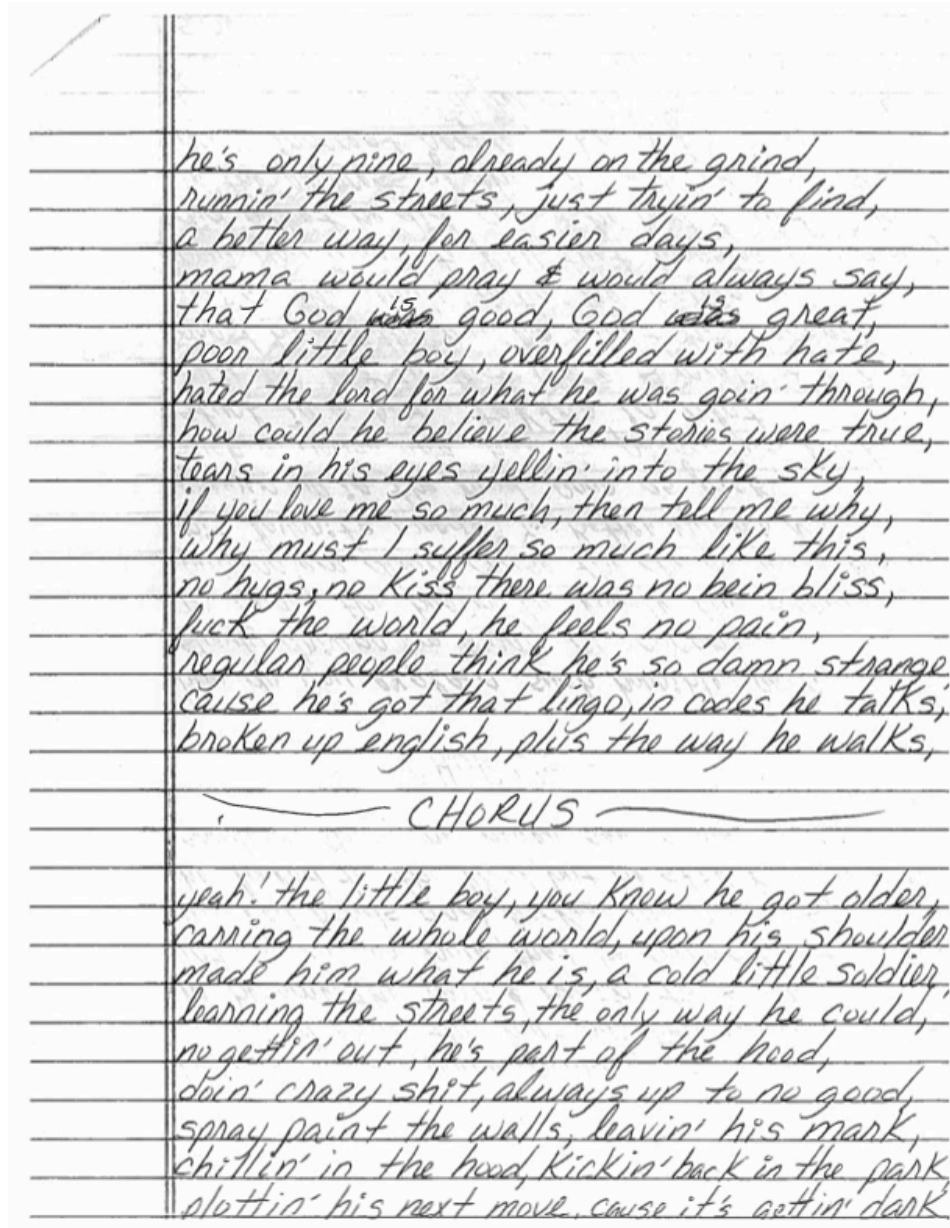 he's only nine, already on the grind,
runnin' the streets, just tryin' to find,
a better way, for easier days,
mama would pray & would always say,
that God is good, God is great,
poor little boy, overfilled with hate,
hated the lord for what he was goin' through,
how could he believe the stories were true,
tears in his eyes yellin' into the sky,
if you love me so much, then tell me why,
why must I suffer so much like this,
no hugs, no kiss there was no bein bliss,
fuck the world, he feels no pain,
regular people think he's so damn strange
cause he's got that lingo, in codes he talks,
broken up english, plus the way he walks,
CHORUS
yeah! the little boy, you know he got older,
carring the whole world, upon his shoulder
made him what he is, a cold little soldier,
learning the streets, the only way he could,
no gettin' out, he's part of the hood,
doin' crazy shit, always up to no good,
spray paint the walls, leavin' his mark,
chillin' in the hood, kickin' back in the park
plottin' his next move, cause it's gettin' dark